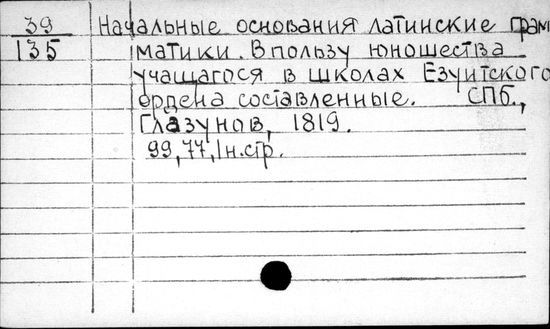 39 Начальные основания латинские грам
135 матики. В пользу юношества
учащагося в школах Езуитского
ордена составленные. СПб.,
Глазунов, 1819.
99, 77, 1н.стр.